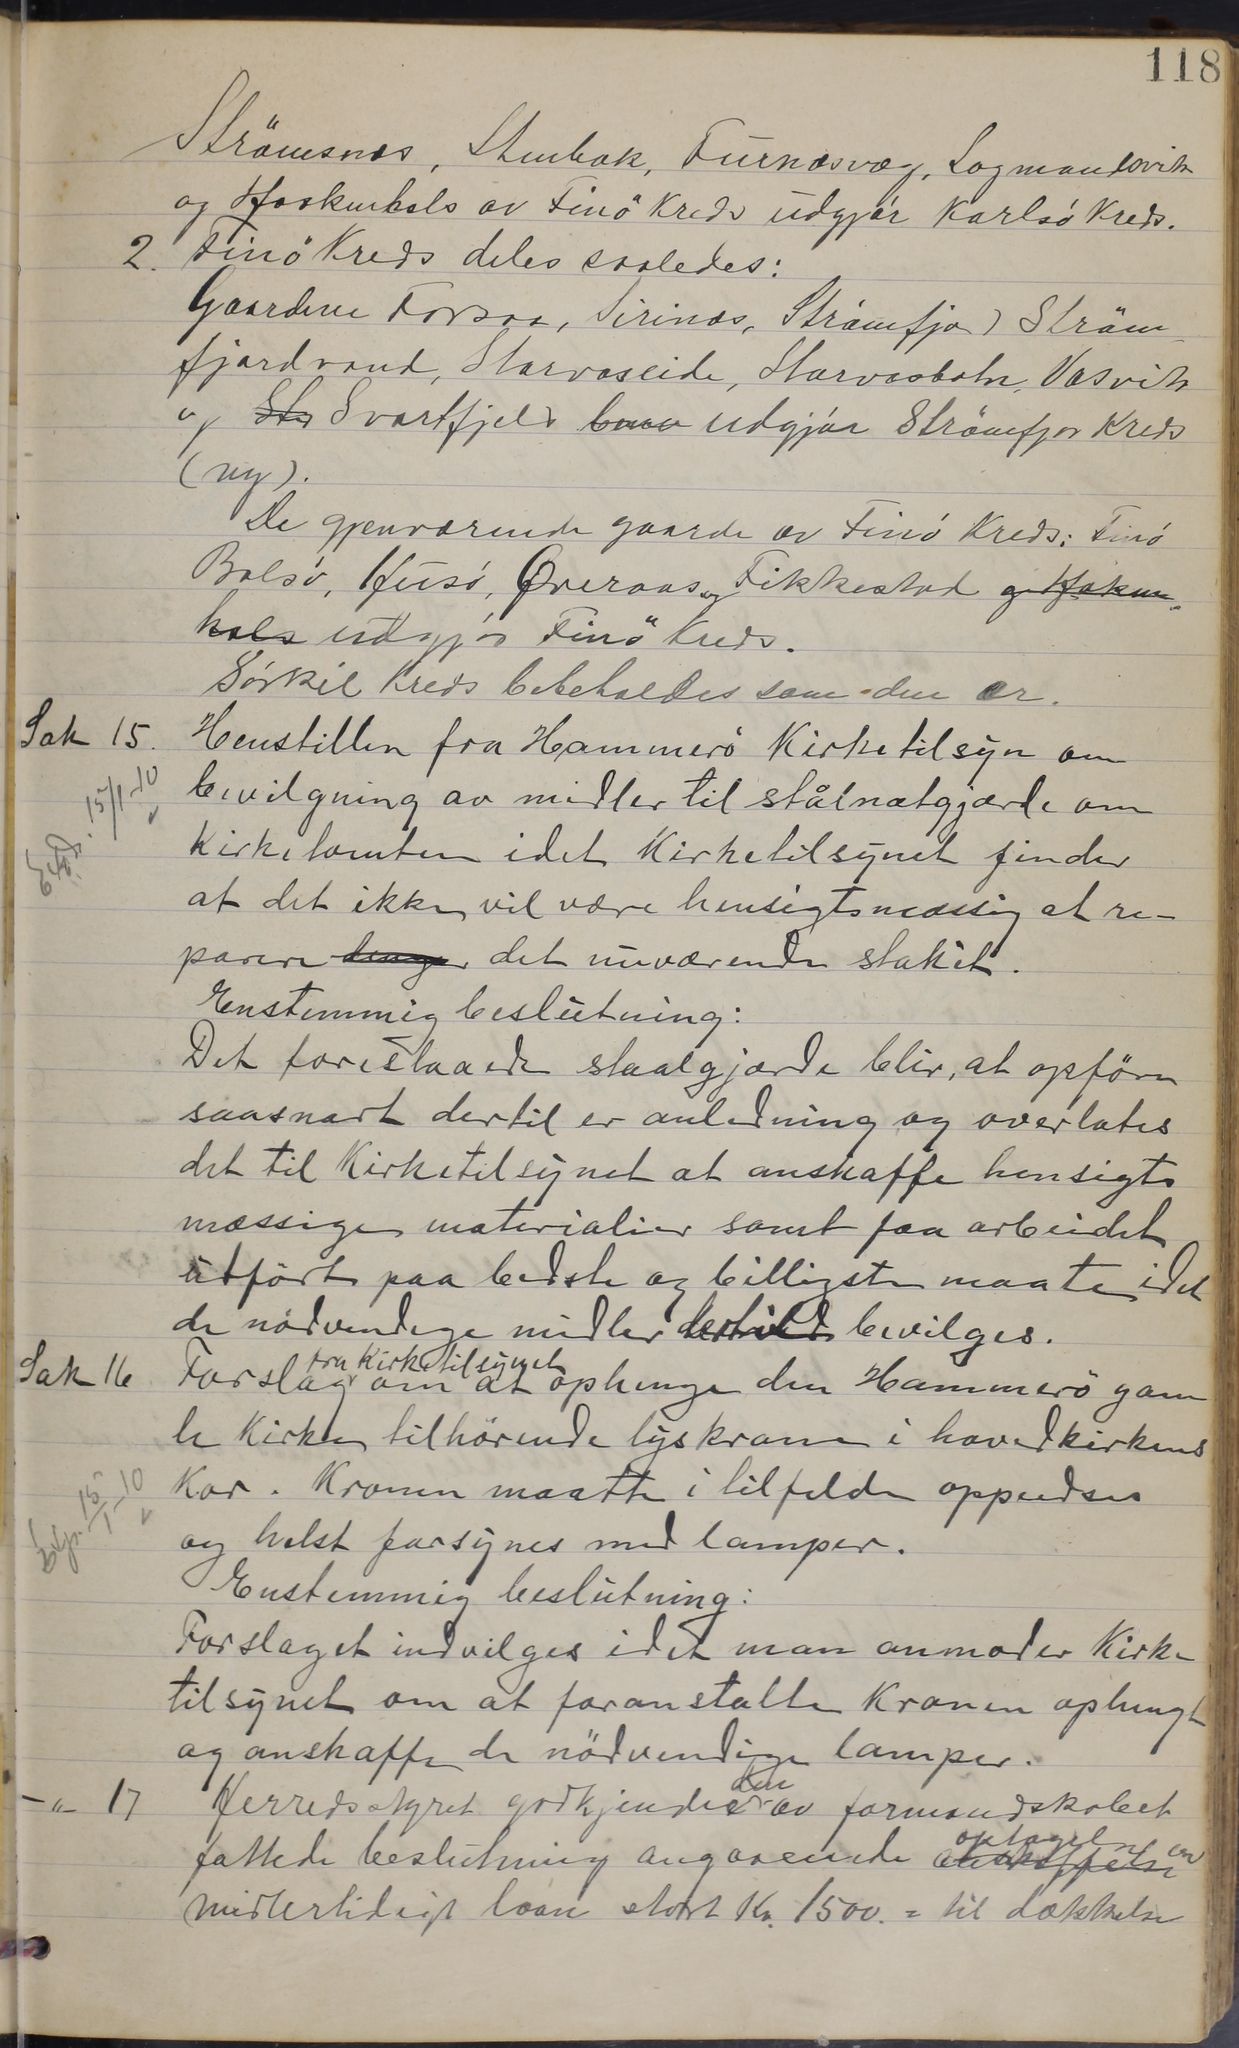 118
Strömsnes, Stenbak, Furnesvæg, Lagmandsvik
og Haakenhals av Finö Kreds udgjör Karlsö Kreds.
2. Finö Kreds deles saaledes:
Gaardene Forsaa, Sirinæs, Strömfjor Ström
fjordvand, Storvaseide, Storvasbotn, Vasvik
og Svartfjeld udgjör Strömfjor Kreds
(ny).
De gjenværende gaarde av Finö Kreds: Finö
Balsö, Husö, Överaas og Fikkestad og Haken-
hals udgjör Finö Kreds.
Sörkil Kreds bebeholdes som den er.
Sak 15. Henstillen fra Hammerö Kirketilsyn om
15/1-10
bevilgning av midler til stålnætgjærde om
Kirketomten idet Kirketilsynet finder
at det ikke vil være hensigtsmæssig at re-
parere det nuværende stakit.
Enstemmig beslutning:
Det foreslaaede staalgjærde blir, at opföre
saasnart dertil er anledning og overlates
det til Kirketilsynet at anskaffe hensigts
mæssige materialier samt faa arbeidet
utfört paa bedste og billigste maate idet
de nödvendige midler dertil bevilges.
Sak 16 Forslag fra Kirketilsynet om at ophenge den Hammerö gam
le Kirke tilhörende lyskrone i hovedkirkens
15/1-10
Kor. Kronen maatte i tilfelde oppudses
og helst forsynes med lamper.
Enstemmig beslutning:
Forslaget indvilges idet man anmoder Kirke
tilsynet om at foranstalte Kronen ophengt
og anskaffe de nödvendige lamper.
-"- 17 Herredsstyret godkjender den av formandskabet
fattede beslutning angaaende anskaffelse optagelse av
midlertidigt laan stort Kr. 1500.= til dækkelse